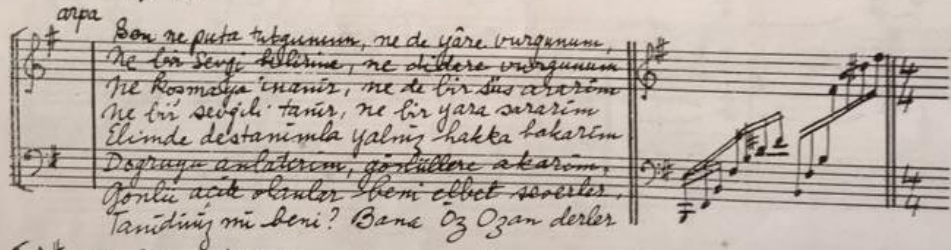 arpa
Ben ne puta tutgunum, ne de yâre vurgunum,
Ne bir sevgi bilirine, ne didere vurgunum
Ne kosmaya inanır, ne de bir süs ararım
Ne bir sevgili tanır, ne bir yara sararım
Elimde destanımla yalnız hakka bakarım
Dogruyu anlatırım, gönüllere akarım,
Gönlü açık olanlar beni elbet severler,
Tanıdınız mı beni? Bana Oz Ozan derler
4
4
4
4